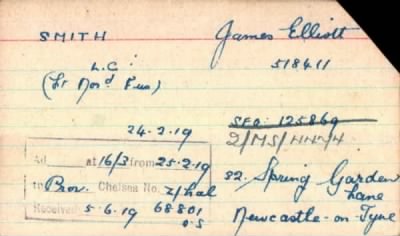 SMITH James Elliott
L.C. 518411
(Lt Nor'd Fus)
SFO: 125869
24-2-19 2/MS/
Ad at 16/3 from 25-2-19
to Prov. Chelsea No. 2/hal 32. Spring Garden
Lane
Received 5-6-19 68801 Newcastle-on-Tyne
O.S